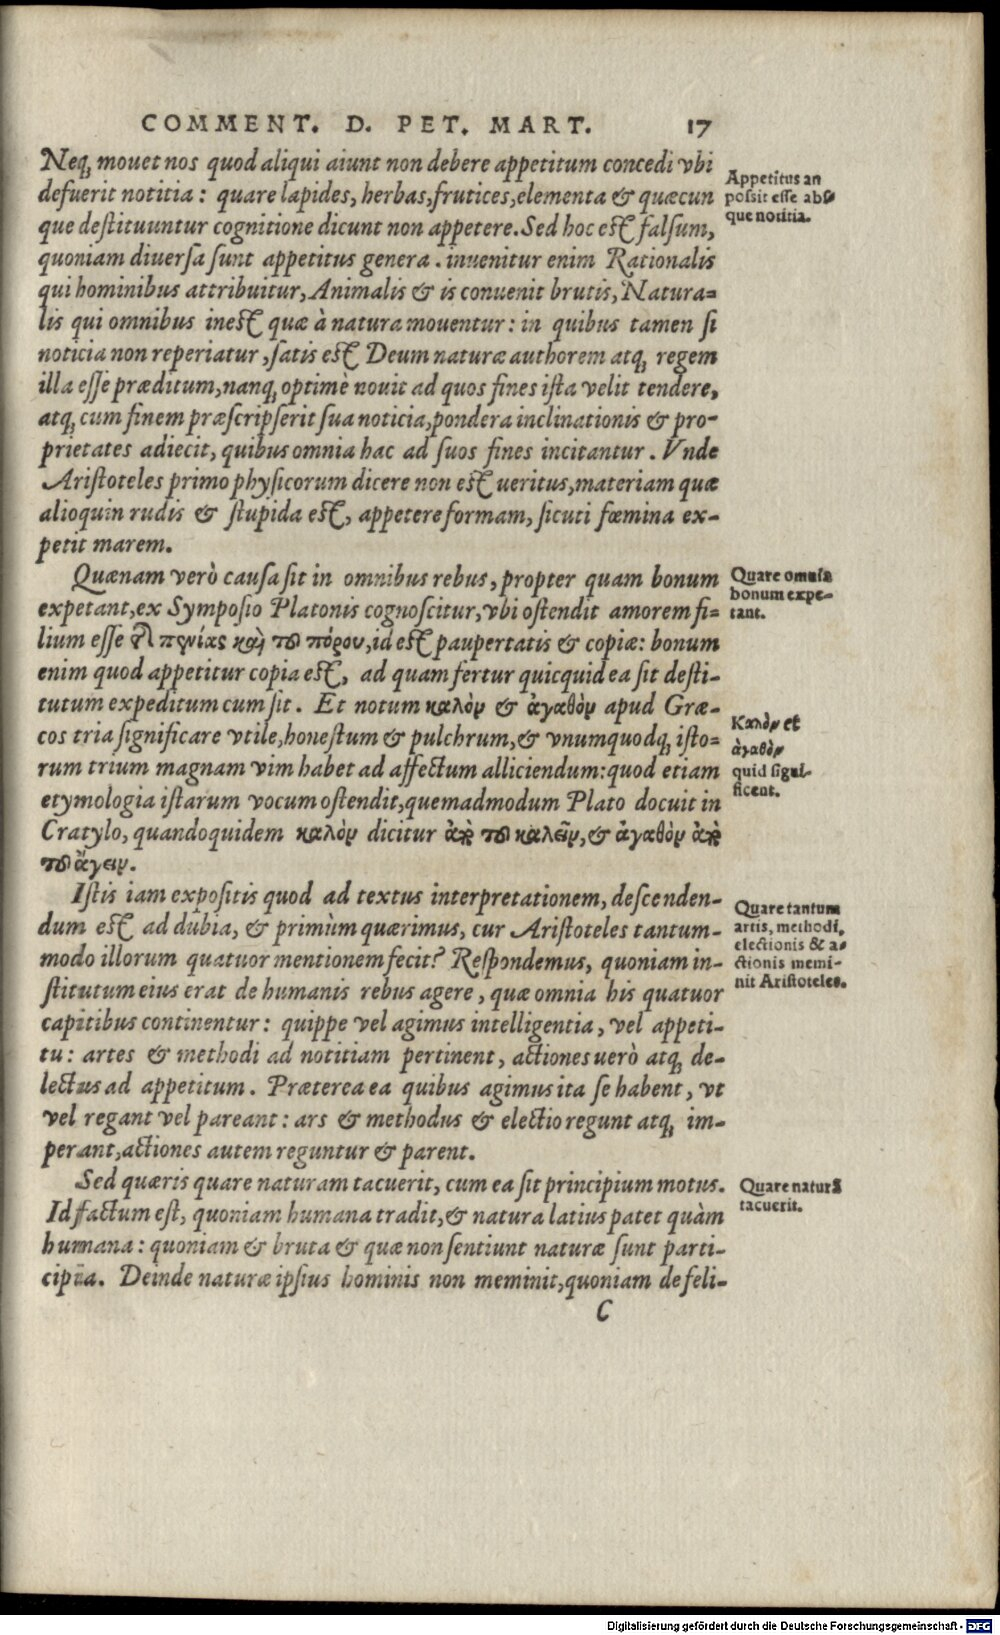 COMMENT. D. PET. MART. 17
Neq; mouet nos quod aliqui aiunt non debere appetitum concedi vbi
defuerit notitia: quare lapides, herbas, frutices, elementa & quæcun
que destituuntur cognitione dicunt non appetere. Sed hoc est falsum,
quoniam diuersa sunt appetitus genera. inuenitur enim Rationalis
qui hominibus attribuitur, Animalis & is conuenit brutis, Natura=
lis qui omnibus inest quæ à natura mouentur: in quibus tamen si
noticia non reperiatur, satis est Deum naturæ authorem atq; regem
illa esse præditum, nanq; optimè nouit ad quos fines ista velit tendere,
atq; cum finem præscripserit sua noticia, pondera inclinationis & pro-
prietates adiecit, quibus omnia hac ad suos fines incitantur. Vnde
Aristoteles primo physicorum dicere non est ueritus, materiam quæ
alioquin rudis & stupida est, appetere formam, sicuti fœmina ex-
petit marem.
Appetitus an
possit esse abs
que notitia.
Quænam verò causa sit in omnibus rebus, propter quam bonum
expetant, ex Symposio Platonis cognoscitur, vbi ostendit amorem fi=
lium esse τῆς πενίας καὶ τοῦ πόρου, id est paupertatis & copiæ: bonum
enim quod appetitur copia est, ad quam fertur quicquid ea sit desti-
tutum expeditum cum sit. Et notum καλὸν & ἀγαθὸν apud Græ-
cos tria significare vtile, honestum & pulchrum, & vnumquodq; isto=
rum trium magnam vim habet ad affectum alliciendum: quod etiam
etymologia istarum vocum ostendit, quemadmodum Plato docuit in
Cratylo, quandoquidem καλὸν dicitur ἀπὸ τοῦ καλεῖν, & ἀγαθὸν ἀπὸ
τοῦ ἄγειν.
Quare omnia
bonum expe-
tant.
Καλὸν et
ἀγαθὸν
quid signi-
ficent.
Istis iam expositis quod ad textus interpretationem, descenden-
dum est ad dubia, & primùm quærimus, cur Aristoteles tantum-
modo illorum quatuor mentionem fecit? Respondemus, quoniam in-
stitutum eius erat de humanis rebus agere, quæ omnia his quatuor
capitibus continentur: quippe vel agimus intelligentia, vel appeti-
tu: artes & methodi ad notitiam pertinent, actiones uerò atq; de-
lectus ad appetitum. Præterea ea quibus agimus ita se habent, vt
vel regant vel pareant: ars & methodus & electio regunt atq; im-
perant, actiones autem reguntur & parent.
Quare tantum
artis, methodi,
electionis & a-
ctionis memi-
nit Aristoteles.
Sed quæris quare naturam tacuerit, cum ea sit principium motus.
Id factum est, quoniam humana tradit, & natura latius patet quàm
humana: quoniam & bruta & quæ non sentiunt naturæ sunt parti-
cipia. Deinde naturæ ipsius hominis non meminit, quoniam de feli-
Quare naturā
tacuerit.
C
Digitalisierung gefördert durch die Deutsche Forschungsgemeinschaft - DFG